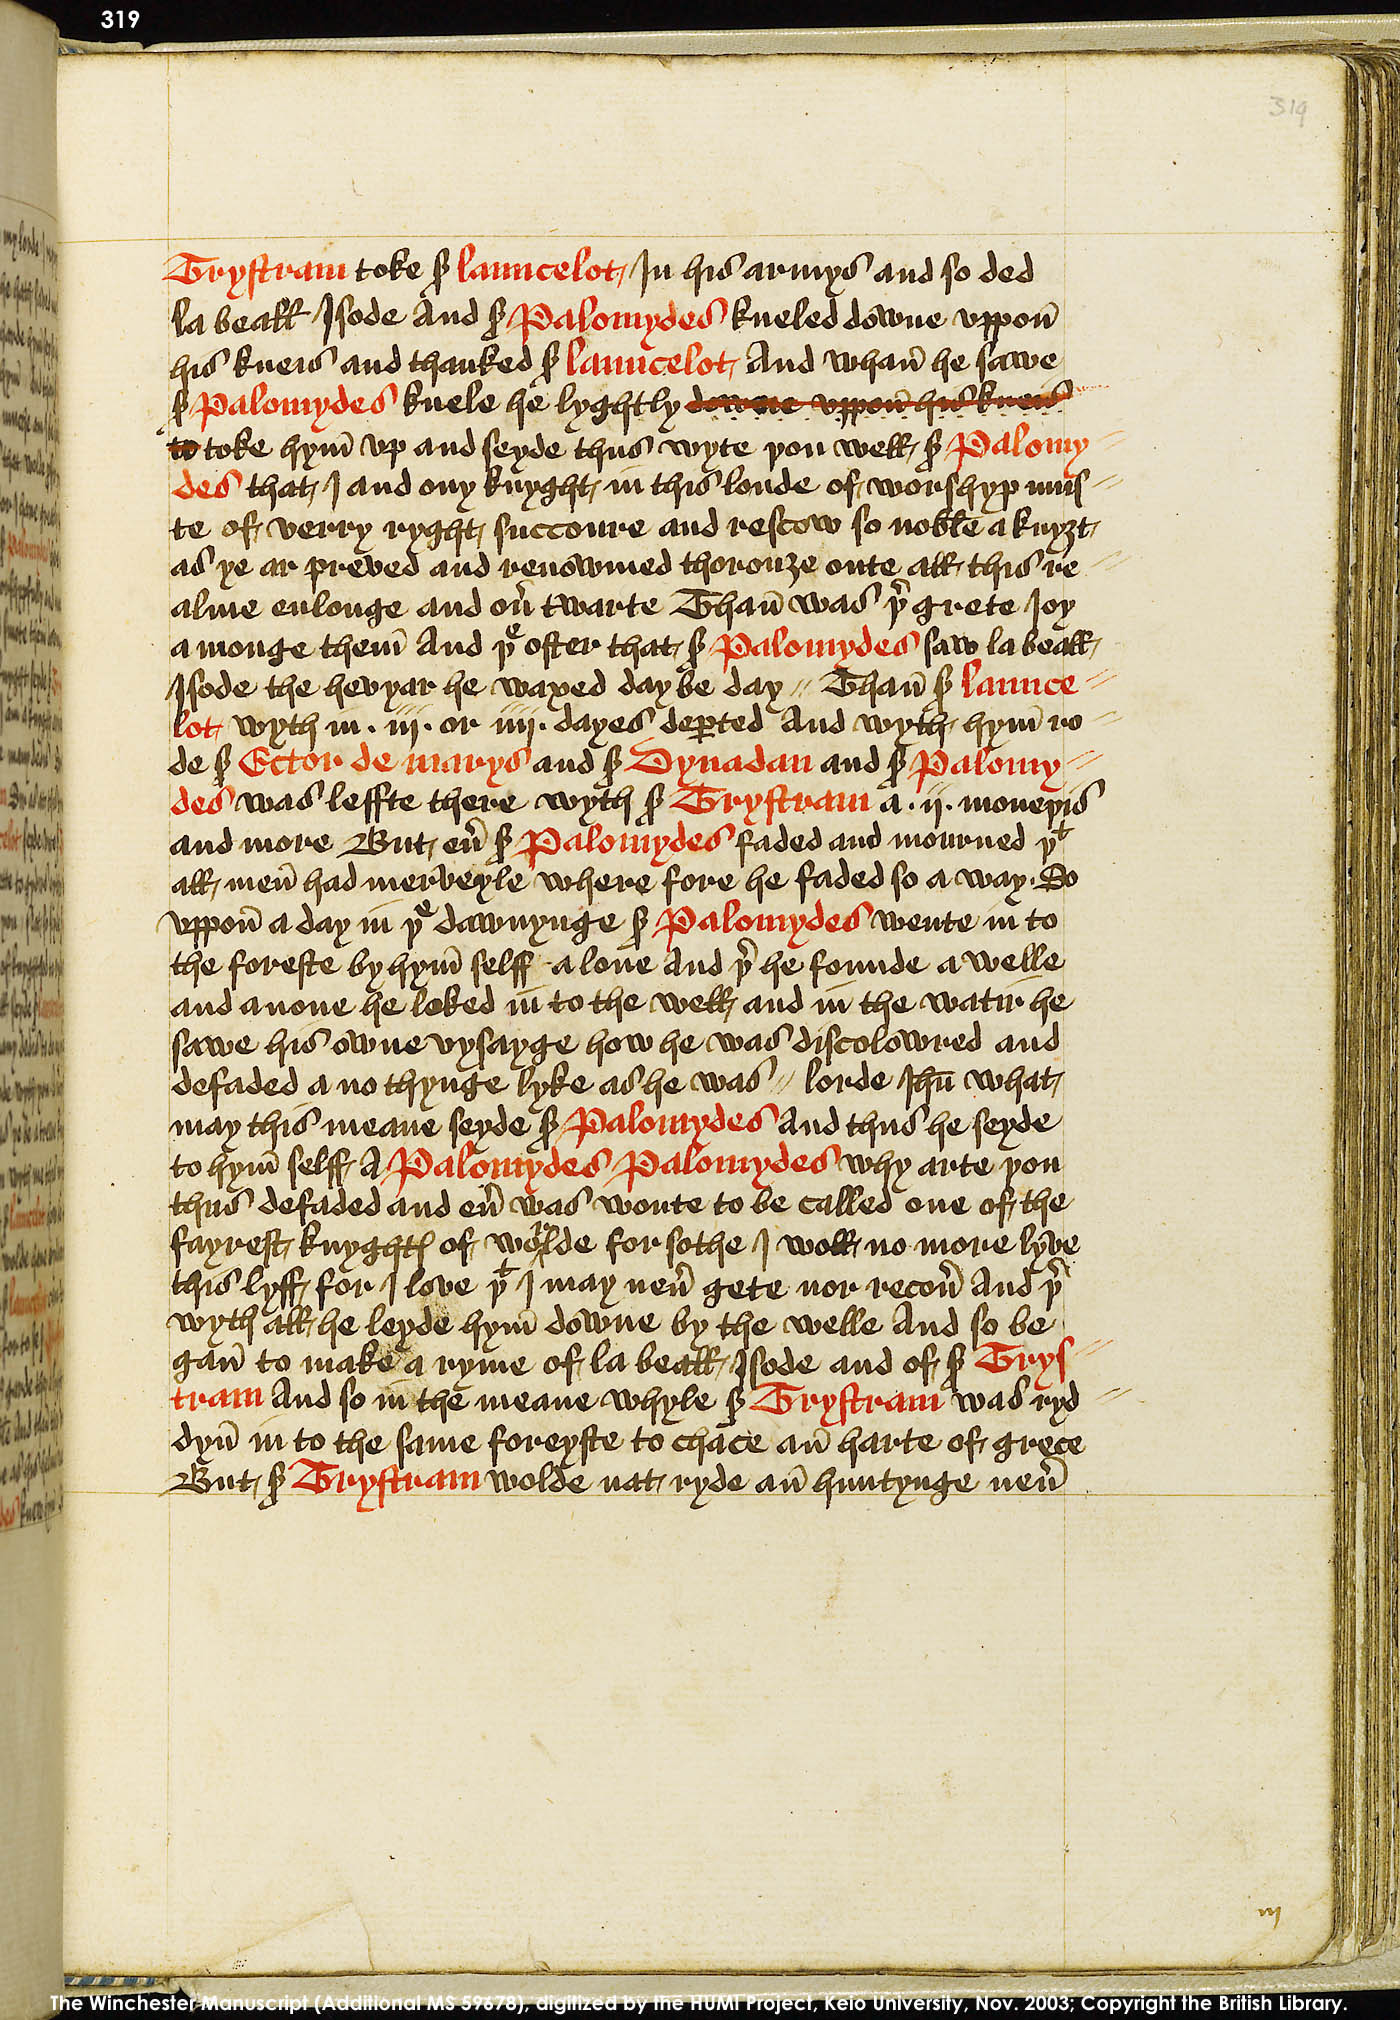 319
319
Trystram toke sr launcelot In his armys and so ded
la beall Isode And sr Palomydes kneled downe vppon̄
his kneis and thanked sr launcelot And whan̄ he sawe
sr Palomydes knele he lyghtly downe vppon̄ his kneis
to toke hym̄ vp and seyde thus wyte you well sr Palomy
des that I and ony knyght in this londe of worshyp mus
te of verry ryght succoure and rescow so noble a knyȝt
as ye ar preved and renowmed thorouȝe oute all this re
alme enlonge and ou̔ twarte Than̄ was þr grete Ioy
a monge them̄ And þe ofter that sr Palomydes saw la beall
Isode the hevyar he waxed day be day // Than̄ sr launce
lot wyth in .iij. or iiij. dayes deꝑted And wyth hym̄ ro
de sr Ector de marys and sr Dynadan and sr Palomy
des was leffte there wyth sr Trystram a .ij. moneþis
and more But eu̔ sr Palomydes faded and mourned þt
all men̄ had merveyle where fore he faded so a way. So
vppon̄ a day in þe dawnynge sr Palomydes wente in to
the foreste by hym̄ selff a lone And þr he founde a welle
and anone he loked in to the well and in the watir he
sawe his owne vysayge how he was discolowred and
defaded a no thynge lyke as he was // lorde Ihū what
may this meane seyde sr Palomydes And thus he seyde
to hym̄ selff A Palomydes Palomydes why arte þou
thus defaded and eu̔ was wonte to be called one of the
fayrest knyghtꝭ of worlde for sothe I woll no more lyve
this lyff for I love þt I may neu̔ gete nor recou̔ And þr
wyth all he leyde hym̄ downe by the welle And so be
gan̄ to make a ryme of la beall Isode and of sr Trys
tram And so in the meane whyle sr Trystram was ryd
dyn̄ in to the same foreyste to chace an̄ harte of grece
But sr Trystram wolde nat ryde an̄ huntynge neu̔
iij
The Winchester Manuscript (Additional MS 59678), digitized by the HUMI Project, Keio University, Nov. 2003; Copyright the British Library.